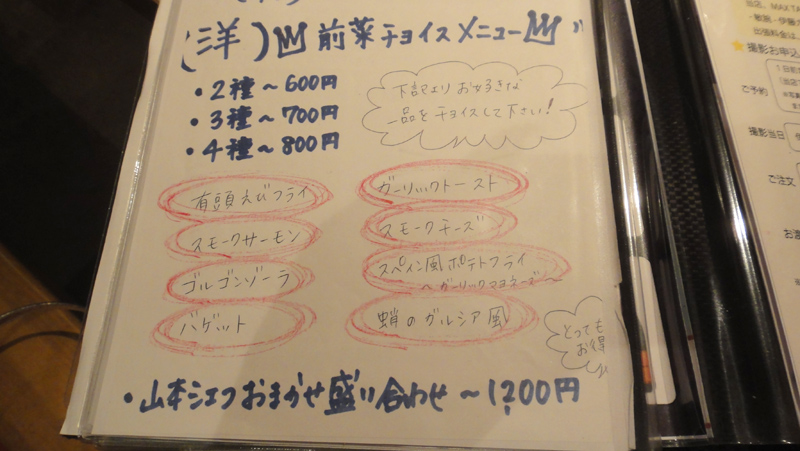 (洋)前菜チョイスメニュー
・2種~600円
・3種~700円
・4種~800円
下記よりお好きな
一品をチョイスして下さい!
有頭えびフライ
スモークサーモン
ゴルゴンゾーラ
バゲット
ガーリックトースト
スモークチーズ
スペイン風ポテトフライ
~ガーリックマヨネーズ~
蛸のガルシア風
とっても
お得
・山本シェフおまかせ盛り合わせ~1,200円
★撮影お申込
ご予約
撮影当日
ご注文